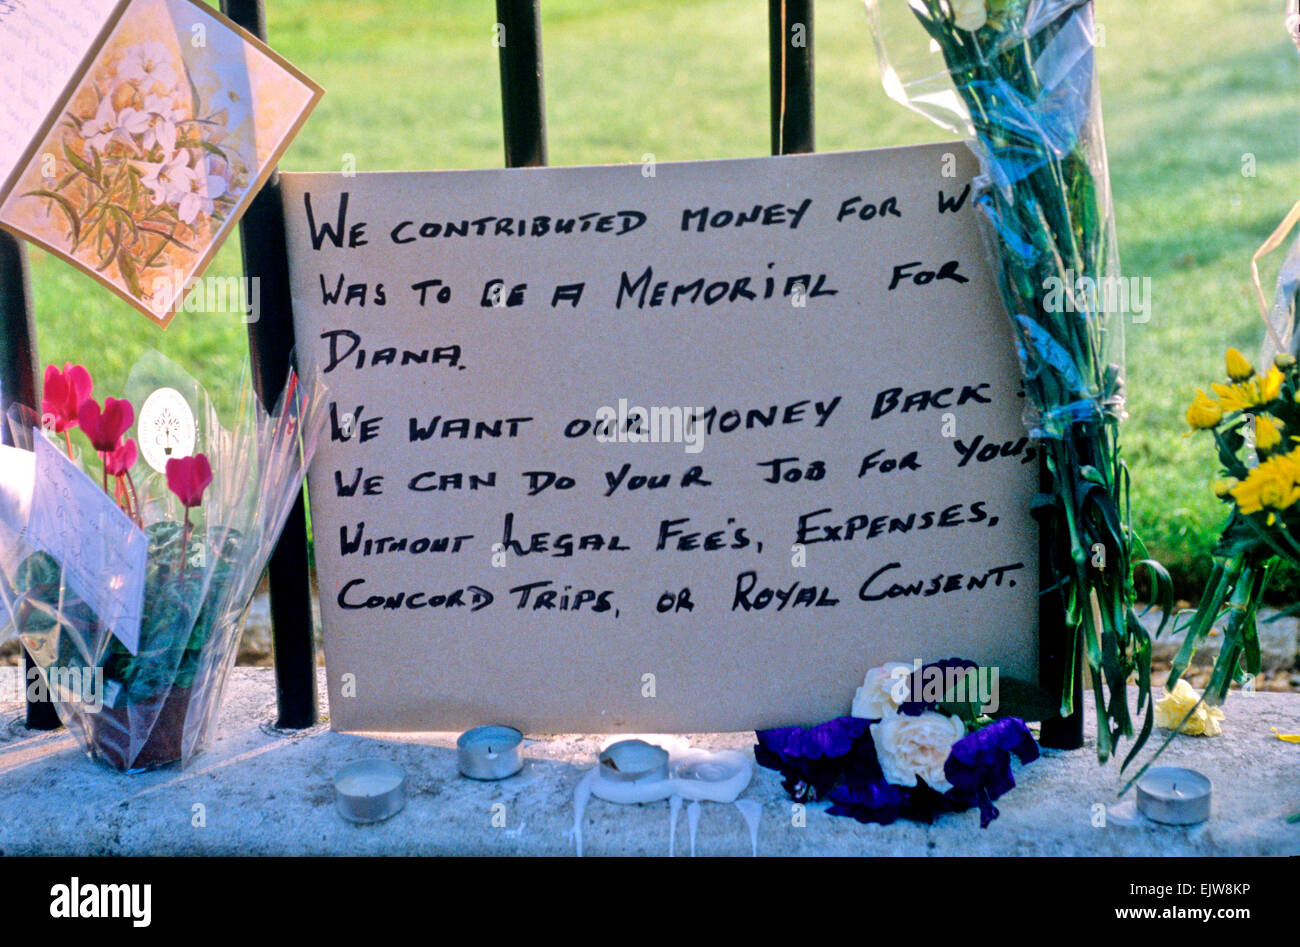 We contributed money for w
was to be a Memorial for
Diana.
We want our money back
We can do your job for you,
without Legal Fee's, Expenses,
Concord Trips, or Royal Consent.
alamy
Image ID: EJW8KP
www.alamy.com